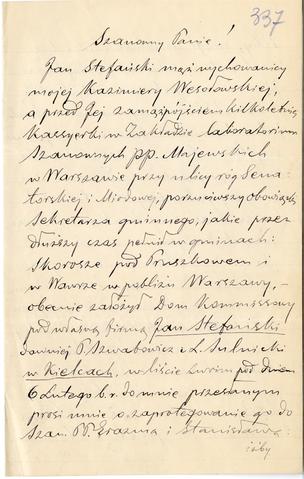 337
Szanowny Panie!
Jan Stefański mąż wychowanicy
mojej Kazimiery Wesołowskiej,
a przed Jej zamążpójściem kilkoletniej
Kassyerki w Zakładzie laboratorium
Szanownych pp. Majewskich
w Warszawie przy ulicy róg Sena-
torskiej i Miodowej, porzuciwszy obowiązki
Sekretarza gminnego, jakie przez
dłuższy czas pełnił w gminach:
Skorosze pod Pruszkowem i
w Wawrze w pobliżu Warszawy, -
obecnie założył Dom Kommissowy
pod własną firmą Jan Stefański
dawniej P. Szwabowicz & L. Sulnicki
w Kielcach, w liście swoim pod dniem
6 Lutego b.r. do mnie przesłanym
prosi mnie o zaprotegowanie go do
Szan. PP. Erazma i Stanisława:
iżby